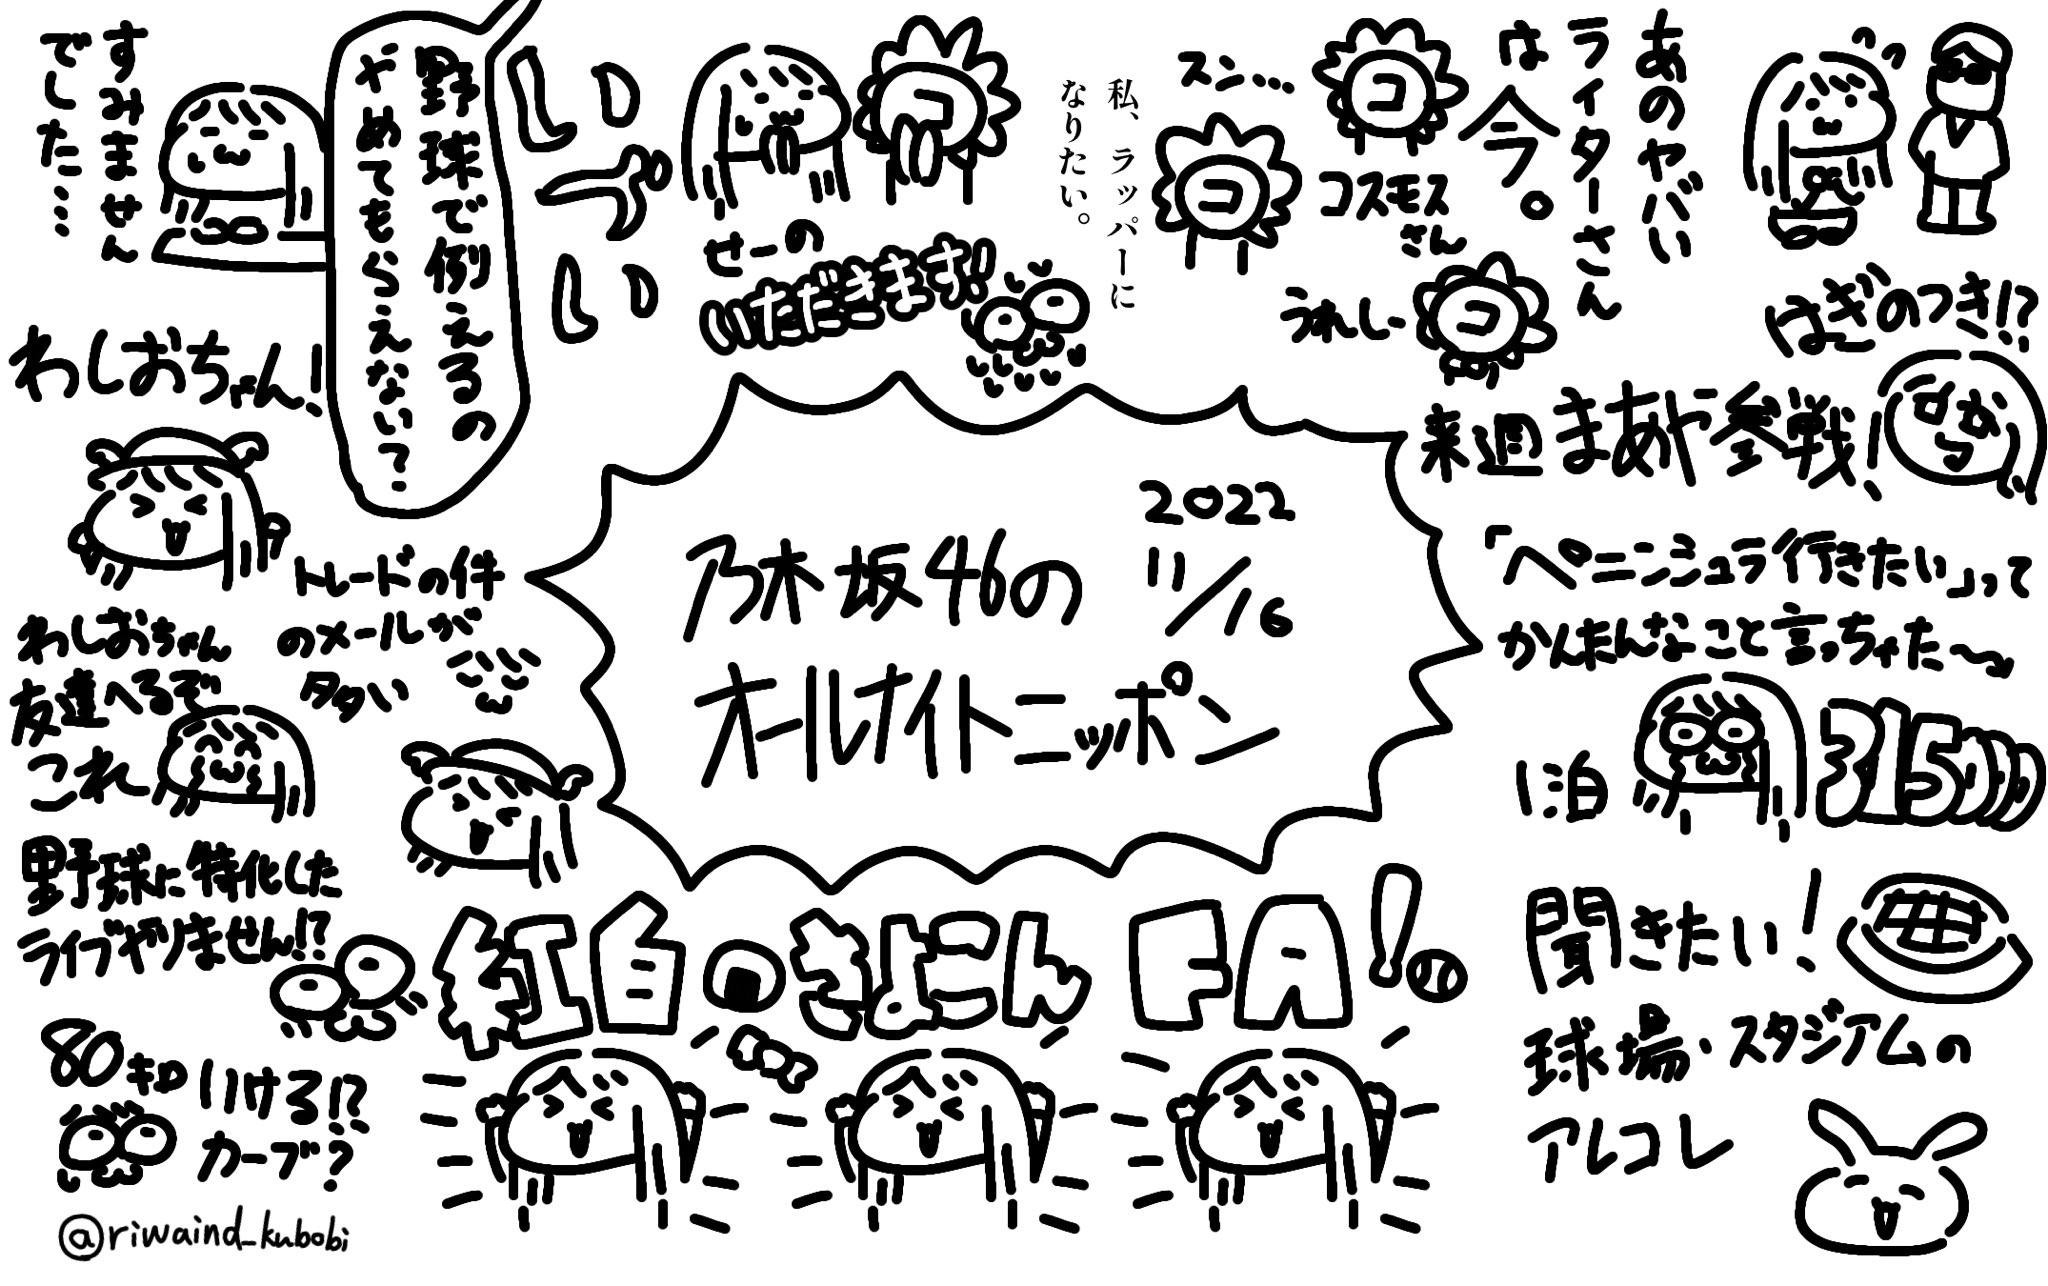 乃木坂46の
オールナイトニッポン
2022
11/16
あのヤバい
ライターさん
は今。
スン…
コ
コ
コスモス
さん
うれしー
コ
私、ラッパーに
なりたい。
コ
せーの
いただきます!
いい
しーし
野球で例えるの
やめてもらえない?
すみません
でした…
はぎのつき!?
来週まあや参戦!
「ペニンシュラ行きたい」って
かんたんなこと言っちゃた〜
1泊
315
聞きたい!
球場・スタジアムの
アレコレ
わしおちゃん!
トレードの件
のメールが
タタい
わしおちゃん
友達へるぞ
これ
野球に特化した
ライブやりません!?
80キロいけろ!?
カーブ?
紅白のきよこん FA!
@riwaind_kubobi